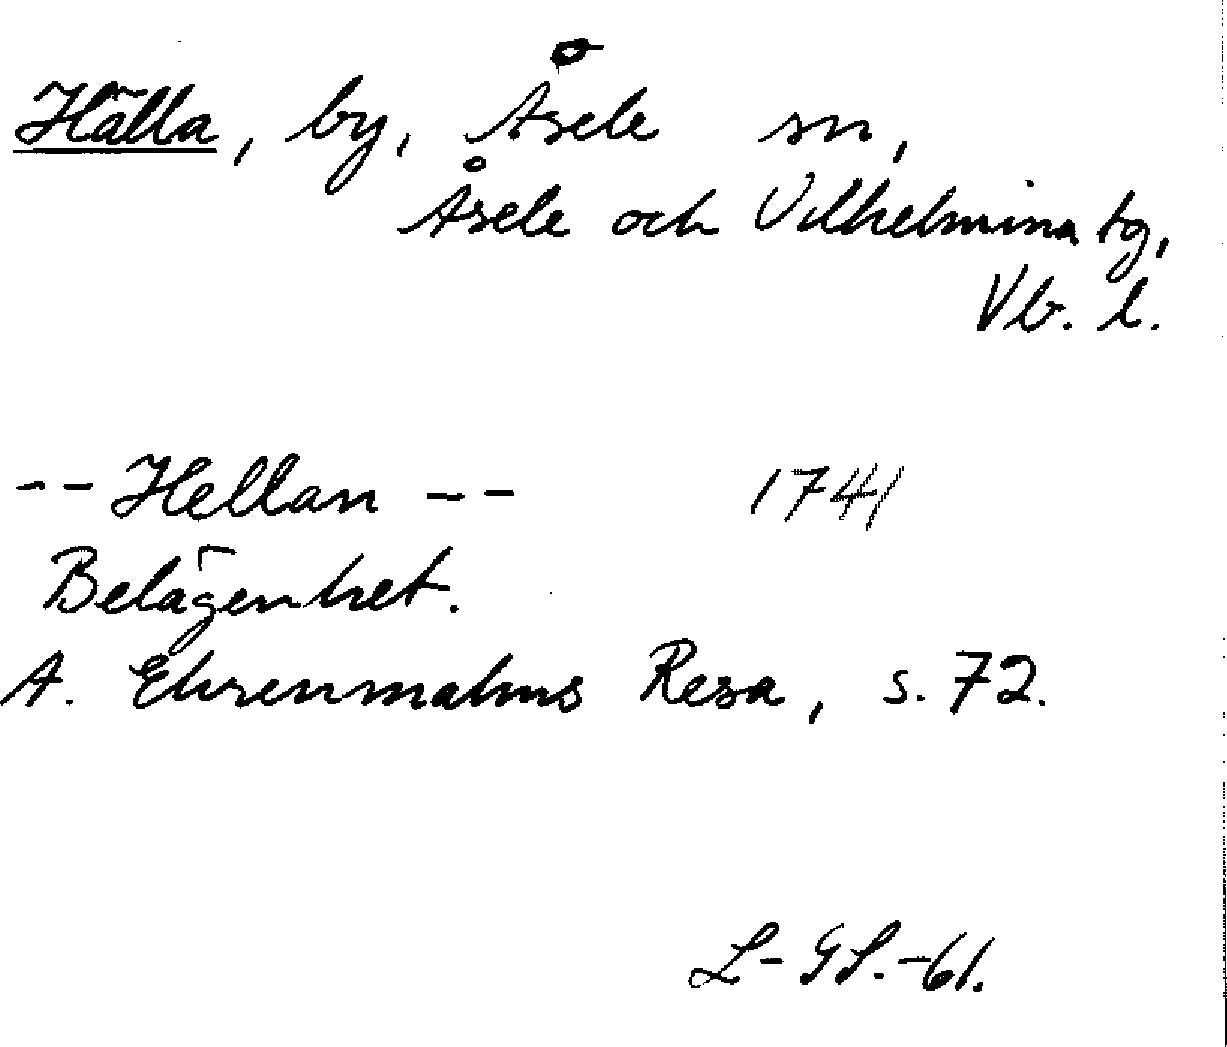 Hälla, by, Åsele sn,
Åsele och Vilhelmina tg,
Vb. l.
-- Hellan -- 1741
Belägenhet.
A. Ehrenmalms Resa, s. 72.
L-GS.-61.